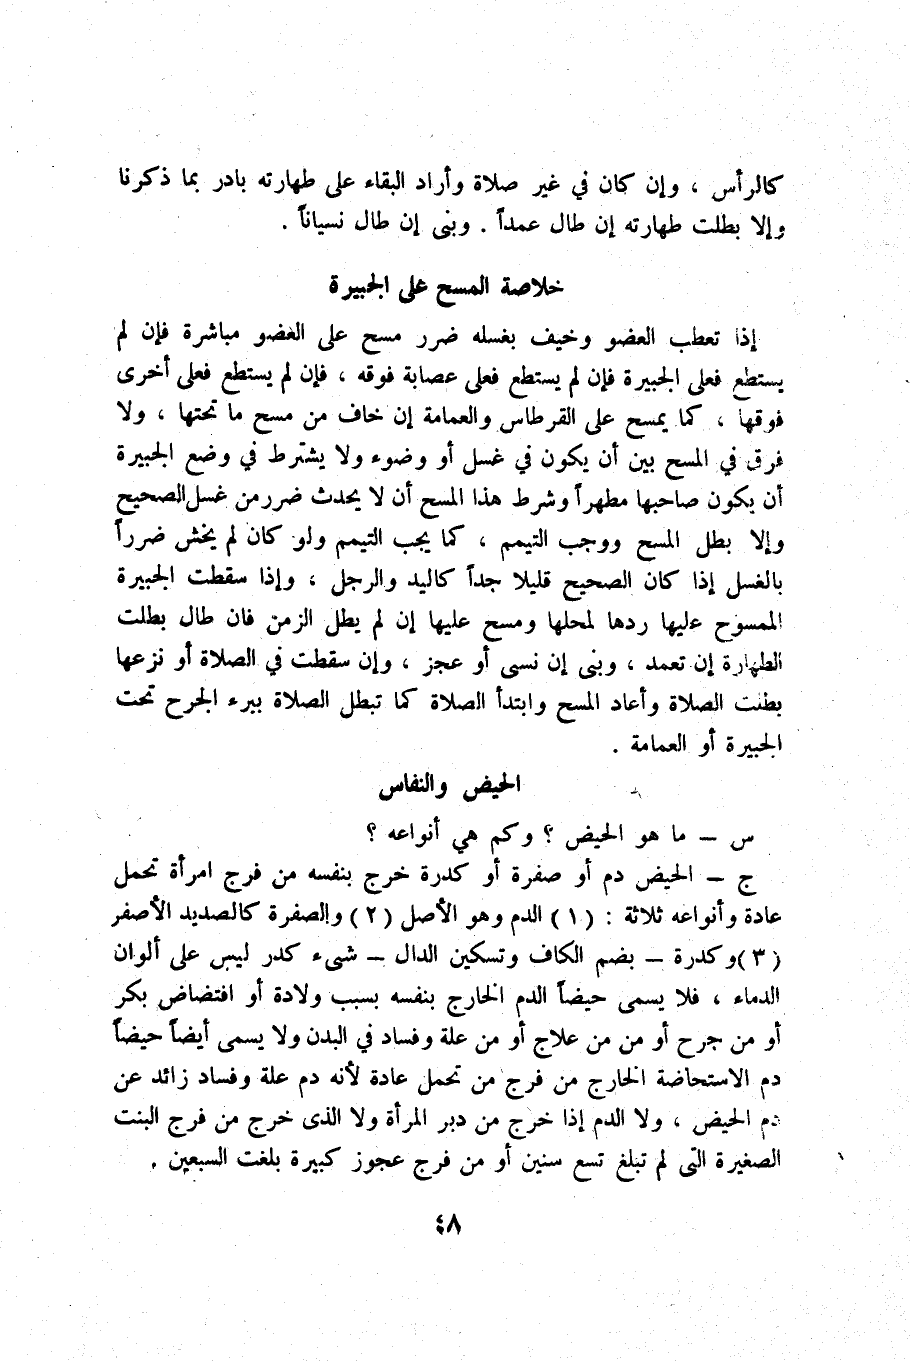 كالرأس ، وإن كان في غير صلاة وأراد البقاء على طهارته بادر بما ذكرنا
وإلا بطلت طهارته إن طال عمداً . وبنى إن طال نسياناً .
خلاصة المسح على الجبيرة
إذا تعطب العضو وخيف بغسله ضرر مسح على العضو مباشرة فإن لم
يستطع فعلى الجبيرة فإن لم يستطع فعلى عصابة فوقه ، فإن لم يستطع فعلى أخرى
فوقها ، كما يمسح على القرطاس والعمامة إن خاف من مسح ما تحتها ، ولا
فرق في المسح بين أن يكون في غسل أو وضوء ولا يشترط في وضع الجبيرة
أن يكون صاحبها مطهراً وشرط هذا المسح أن لا يحدث ضرر من غسل الصحيح
وإلا بطل المسح ووجب التيمم ، كما يجب التيمم ولو كان لم يخش ضرراً
بالغسل إذا كان الصحيح قليلا جداً كاليد والرجل ، وإذا سقطت الجبيرة
الممسوح عليها ردها لمحلها ومسح عليها إن لم يطل الزمن فان طال بطلت
الطهارة إن تعمد ، وبنى إن نسى أو عجز ، وإن سقطت في الصلاة أو نزعها
بطلت الصلاة وأعاد المسح وابتدأ الصلاة كما تبطل الصلاة ببرء الجرح تحت
الجبيرة أو العمامة .
الحيض والنفاس
س – ما هو الحيض ؟ وكم هي أنواعه ؟
ج – الحيض دم أو صفرة أو كدرة خرج بنفسه من فرج امرأة تحمل
عادة وأنواعه ثلاثة : (١) الدم وهو الأصل (٢) والصفرة كالصديد الأصفر
(٣) وكدرة – بضم الكاف وتسكين الدال – شىء كدر ليس على ألوان
الدماء ، فلا يسمى حيضاً الدم الخارج بنفسه بسبب ولادة أو افتضاض بكر
أو من جرح أو من من علاج أو من علة وفساد في البدن ولا يسمى أيضاً حيضاً
دم الاستحاضة الخارج من فرج من تحمل عادة لأنه دم علة وفساد زائد عن
دم الحيض ، ولا الدم إذا خرج من دبر المرأة ولا الذى خرج من فرج البنت
الصغيرة التى لم تبلغ تسع سنين أو من فرج عجوز كبيرة بلغت السبعين .
٤٨